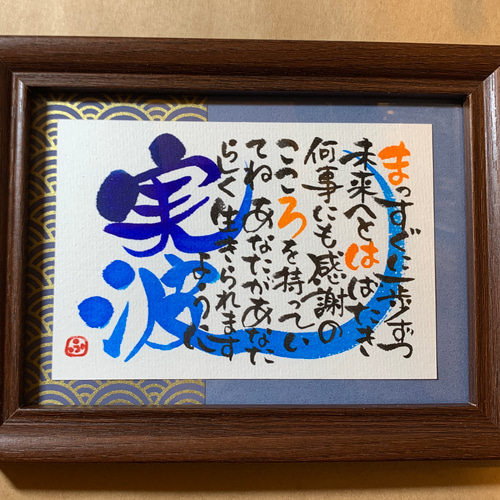 まっすぐに一歩ずつ
未来へとはばたき
何事にも感謝の
こころを持ってい
てね あなたがあなた
らしく生きられます
ように
実波